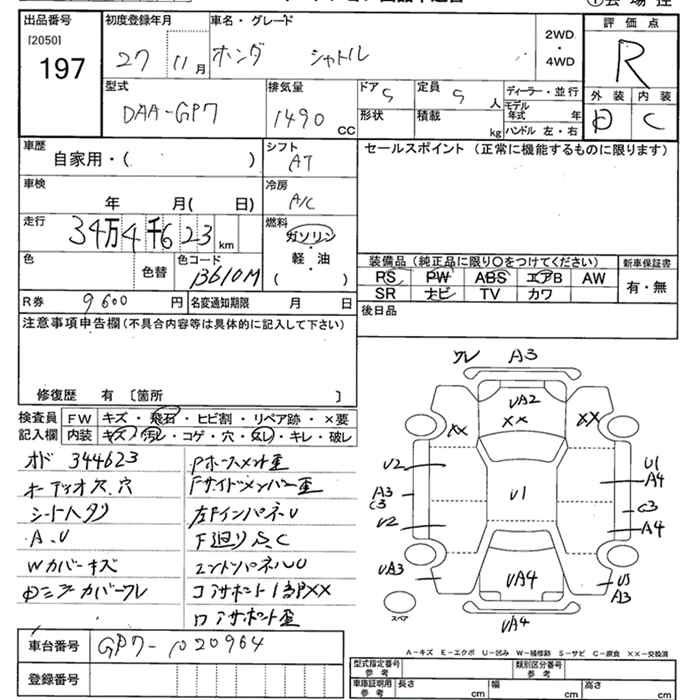 出品番号
[2050]
197
初度登録年月
27 11月
車名・グレード
ホンダ シャトル
2WD
・
4WD
評価点
R
外装 内装
D C
型式
DAA-GP7
排気量
1490 CC
ドア 5
形状
定員 5 人
積載 kg
ディーラー・並行
モデル年式 年
ハンドル 左・右
車歴
自家用・( )
シフト
AT
セールスポイント (正常に機能するものに限ります)
車検
年 月( 日)
冷房
A/C
走行
34万4千623 km
燃料
ガソリン
・
軽油
( )
色
色替
色コード
B610M
装備品(純正品に限り○をつけてください)
RS PW ABS エアB AW
SR ナビ TV カワ
新車保証書
有・無
R券 9600 円
名変通知期限 月 日
後日品
注意事項申告欄(不具合内容等は具体的に記入して下さい)
修復歴 有 〔箇所 〕
検査員記入欄
FW キズ・飛石・ヒビ割・リペア跡・×要
内装 キズ・汚レ・コゲ・穴・スレ・キレ・破レ
オド 344623
オーディオス、穴
シートヘタリ
A、U
Wカバーキズ
Fサイドメンバー歪
左Fインパネ U
F廻りS、C
エンドパネルU
コアサポート1部XX
コアサポート歪
車台番号
登録番号
ワレ A3
UA2
XX
XX
XX
U2
A3
C3
U2
UA3
U1
U1
A4
C3
A4
A3
UA4
UA4
スペア
A-キズ E-エクボ U-凹み W-補修跡 S-サビ C-腐食 XX-交換済
型式指定番号
参考
類別区分番号
参考
車庫証明用
参考
長さ cm
幅 cm
高さ cm